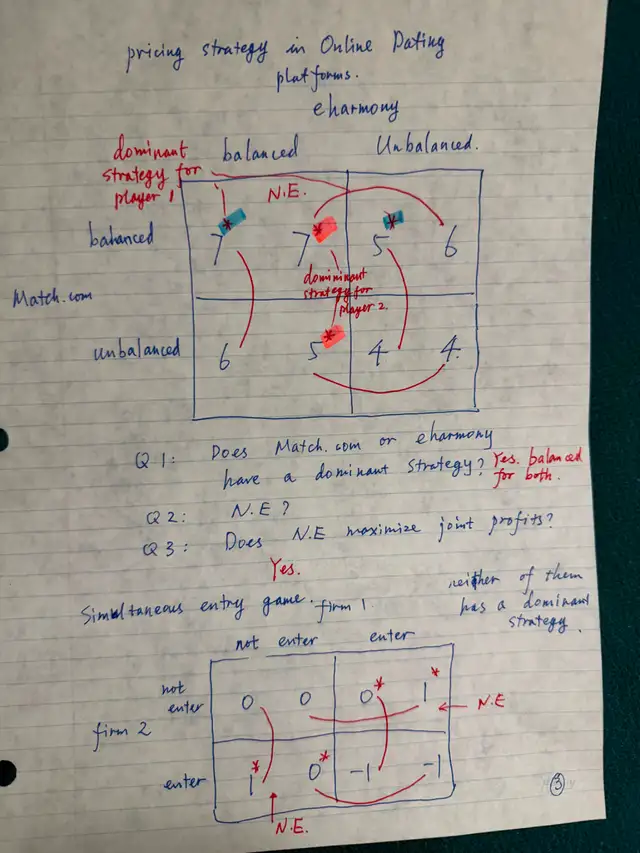 pricing strategy in Online Dating
platforms.
eharmony
dominant
strategy for
player 1
balanced
Unbalanced.
N.E.
balanced
7* 7* 5* 6
Match.com
domininant
strategy for
player 2.
unbalanced
6 5* 4 4.
Q1: Does Match.com or eharmony
have a dominant strategy? Yes. balanced
for both.
Q2: N.E?
Q3: Does N.E maximize joint profits?
Yes.
Simultaneous entry game. firm 1.
neither of them
has a dominant
strategy.
not enter enter
not
enter
0 0 0* 1*
← N.E
firm 2
enter
1* 0* -1 -1
N.E.
3